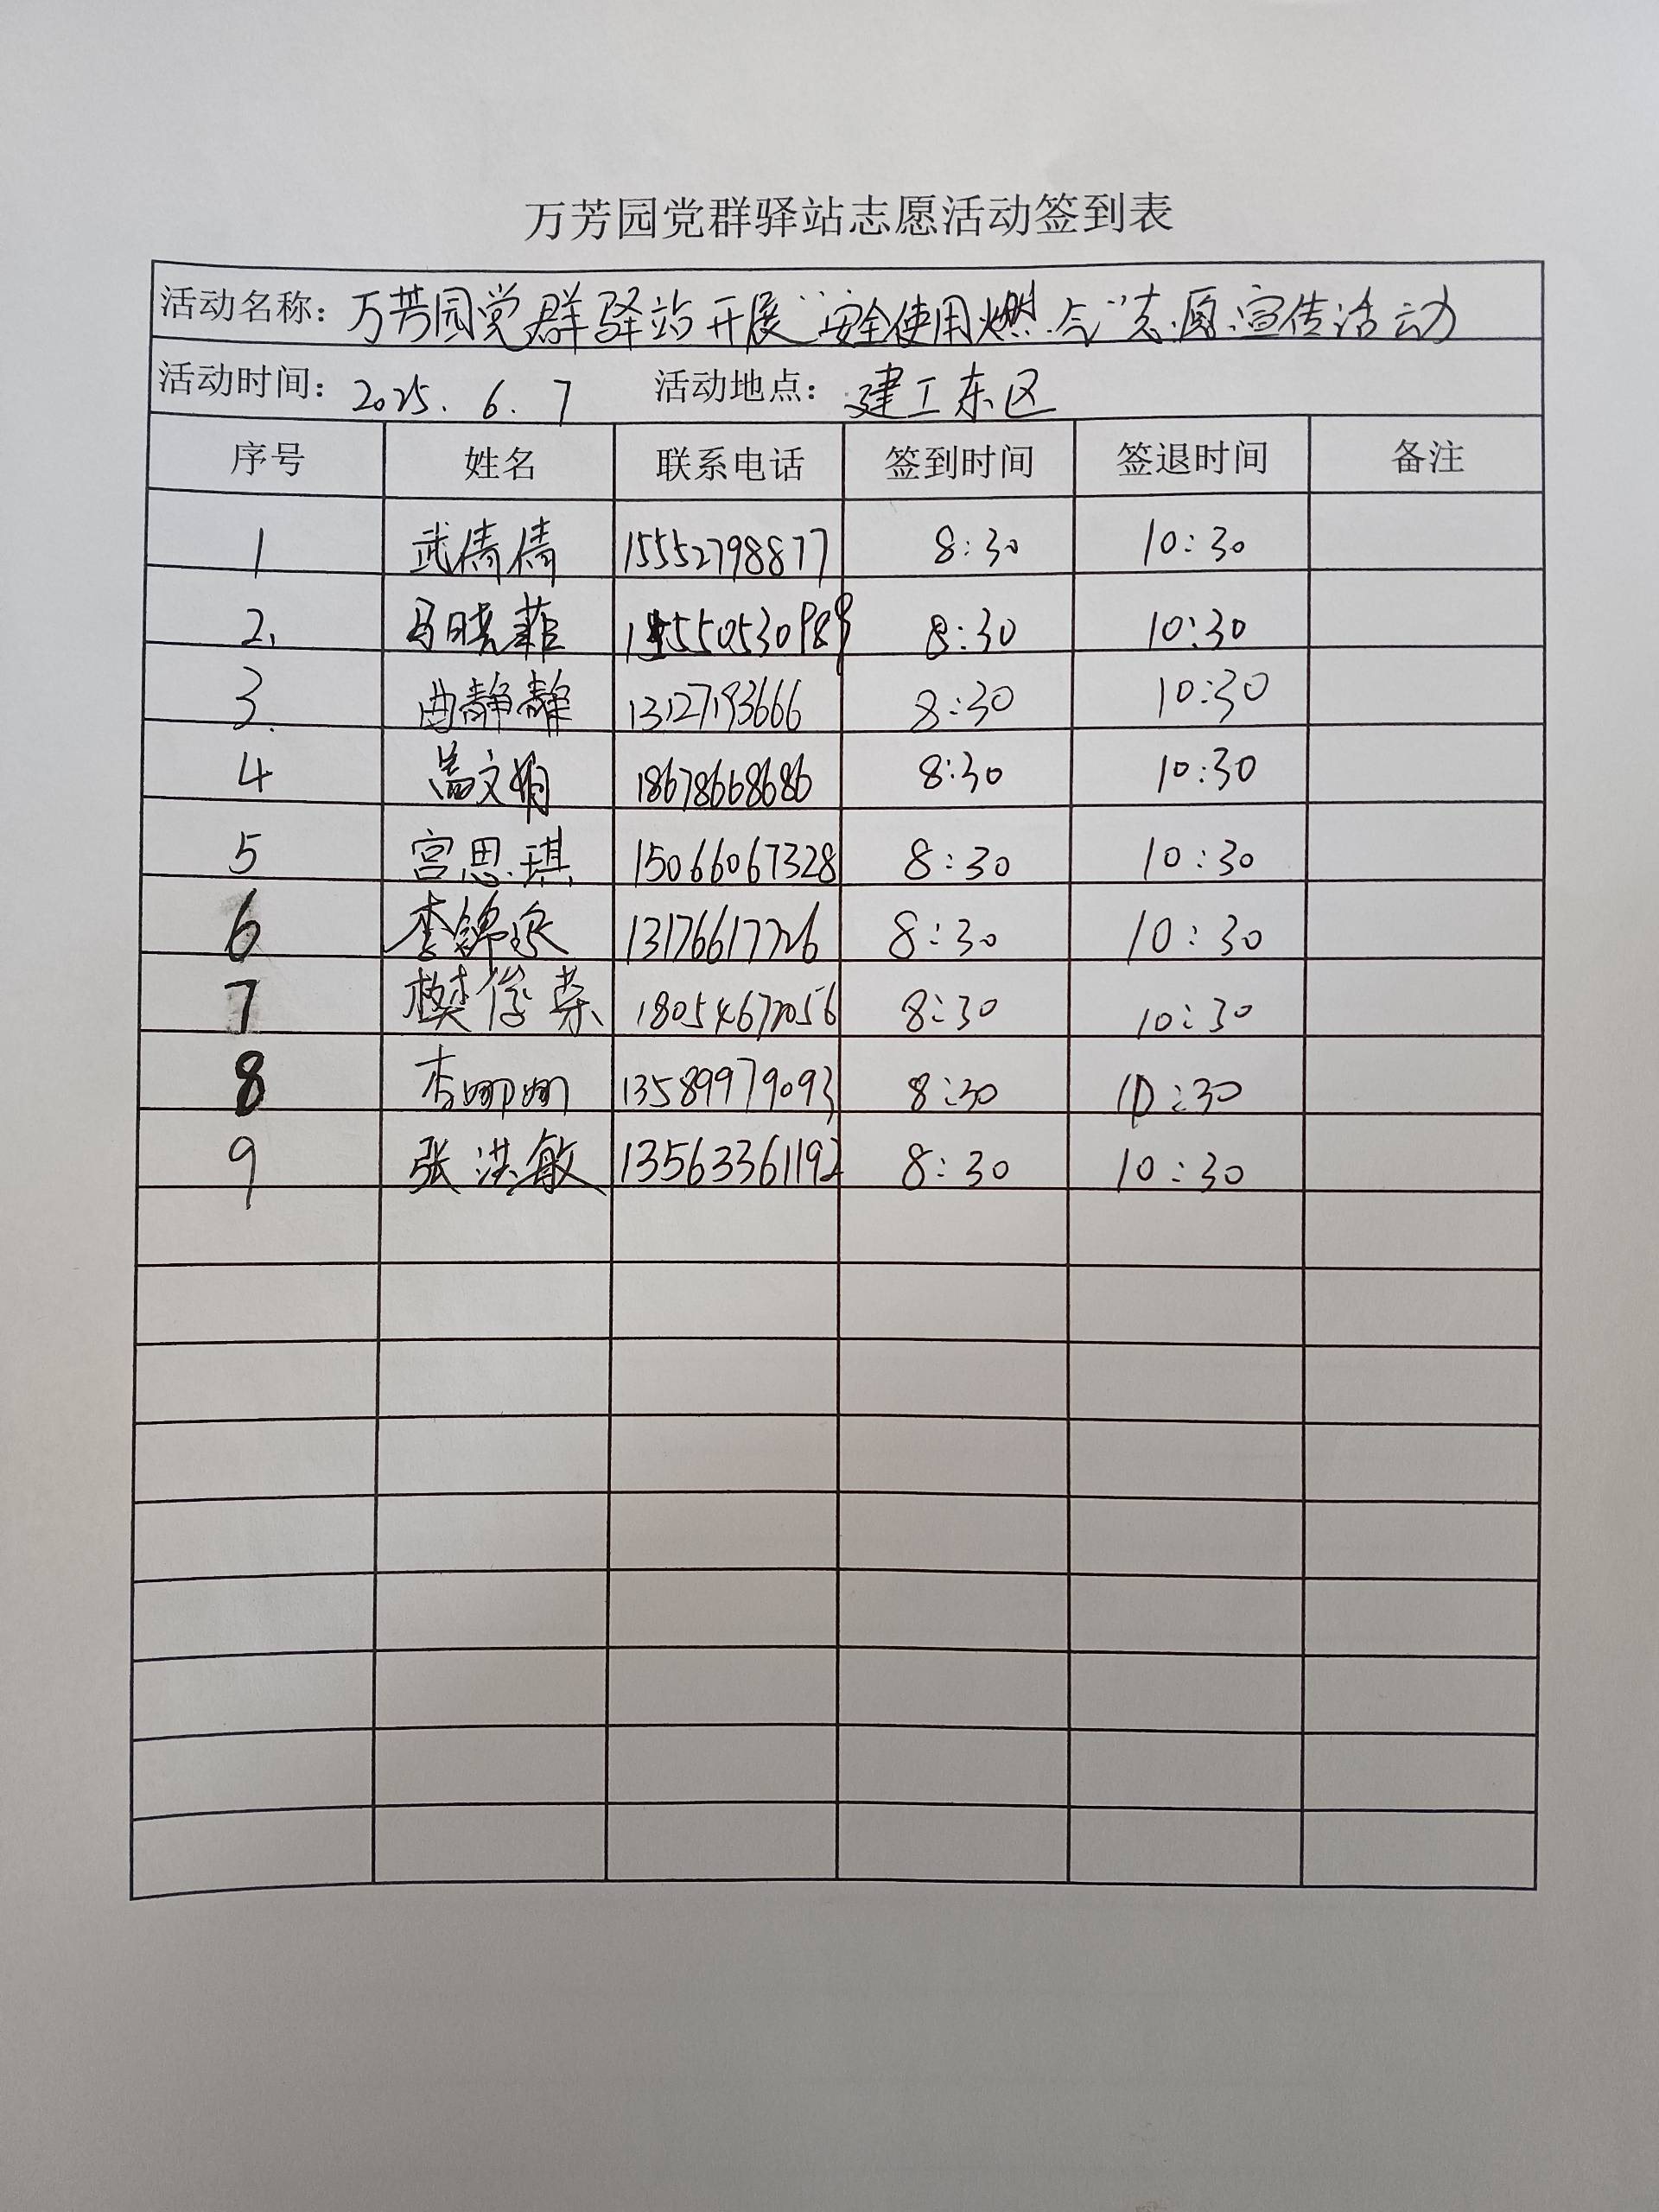 万芳园党群驿站志愿活动签到表
活动名称：万芳园党群驿站开展"安全使用燃气"志愿宣传活动
活动时间：2025.6.7 活动地点：建工东区
序号 姓名 联系电话 签到时间 签退时间 备注
1 武倩倩 15552798877 8:30 10:30
2. 马晓菲 8:30 10:30
3. 曲静静 13127193666 8:30 10:30
4 文娟 18678668686 8:30 10:30
5 宫思琪 15066067328 8:30 10:30
6 李锦 13176617726 8:30 10:30
7 樊俊荣 18054672056 8:30 10:30
8 李娜娜 13589979093 8:30 10:30
9 张洪敏 13563361192 8:30 10:30